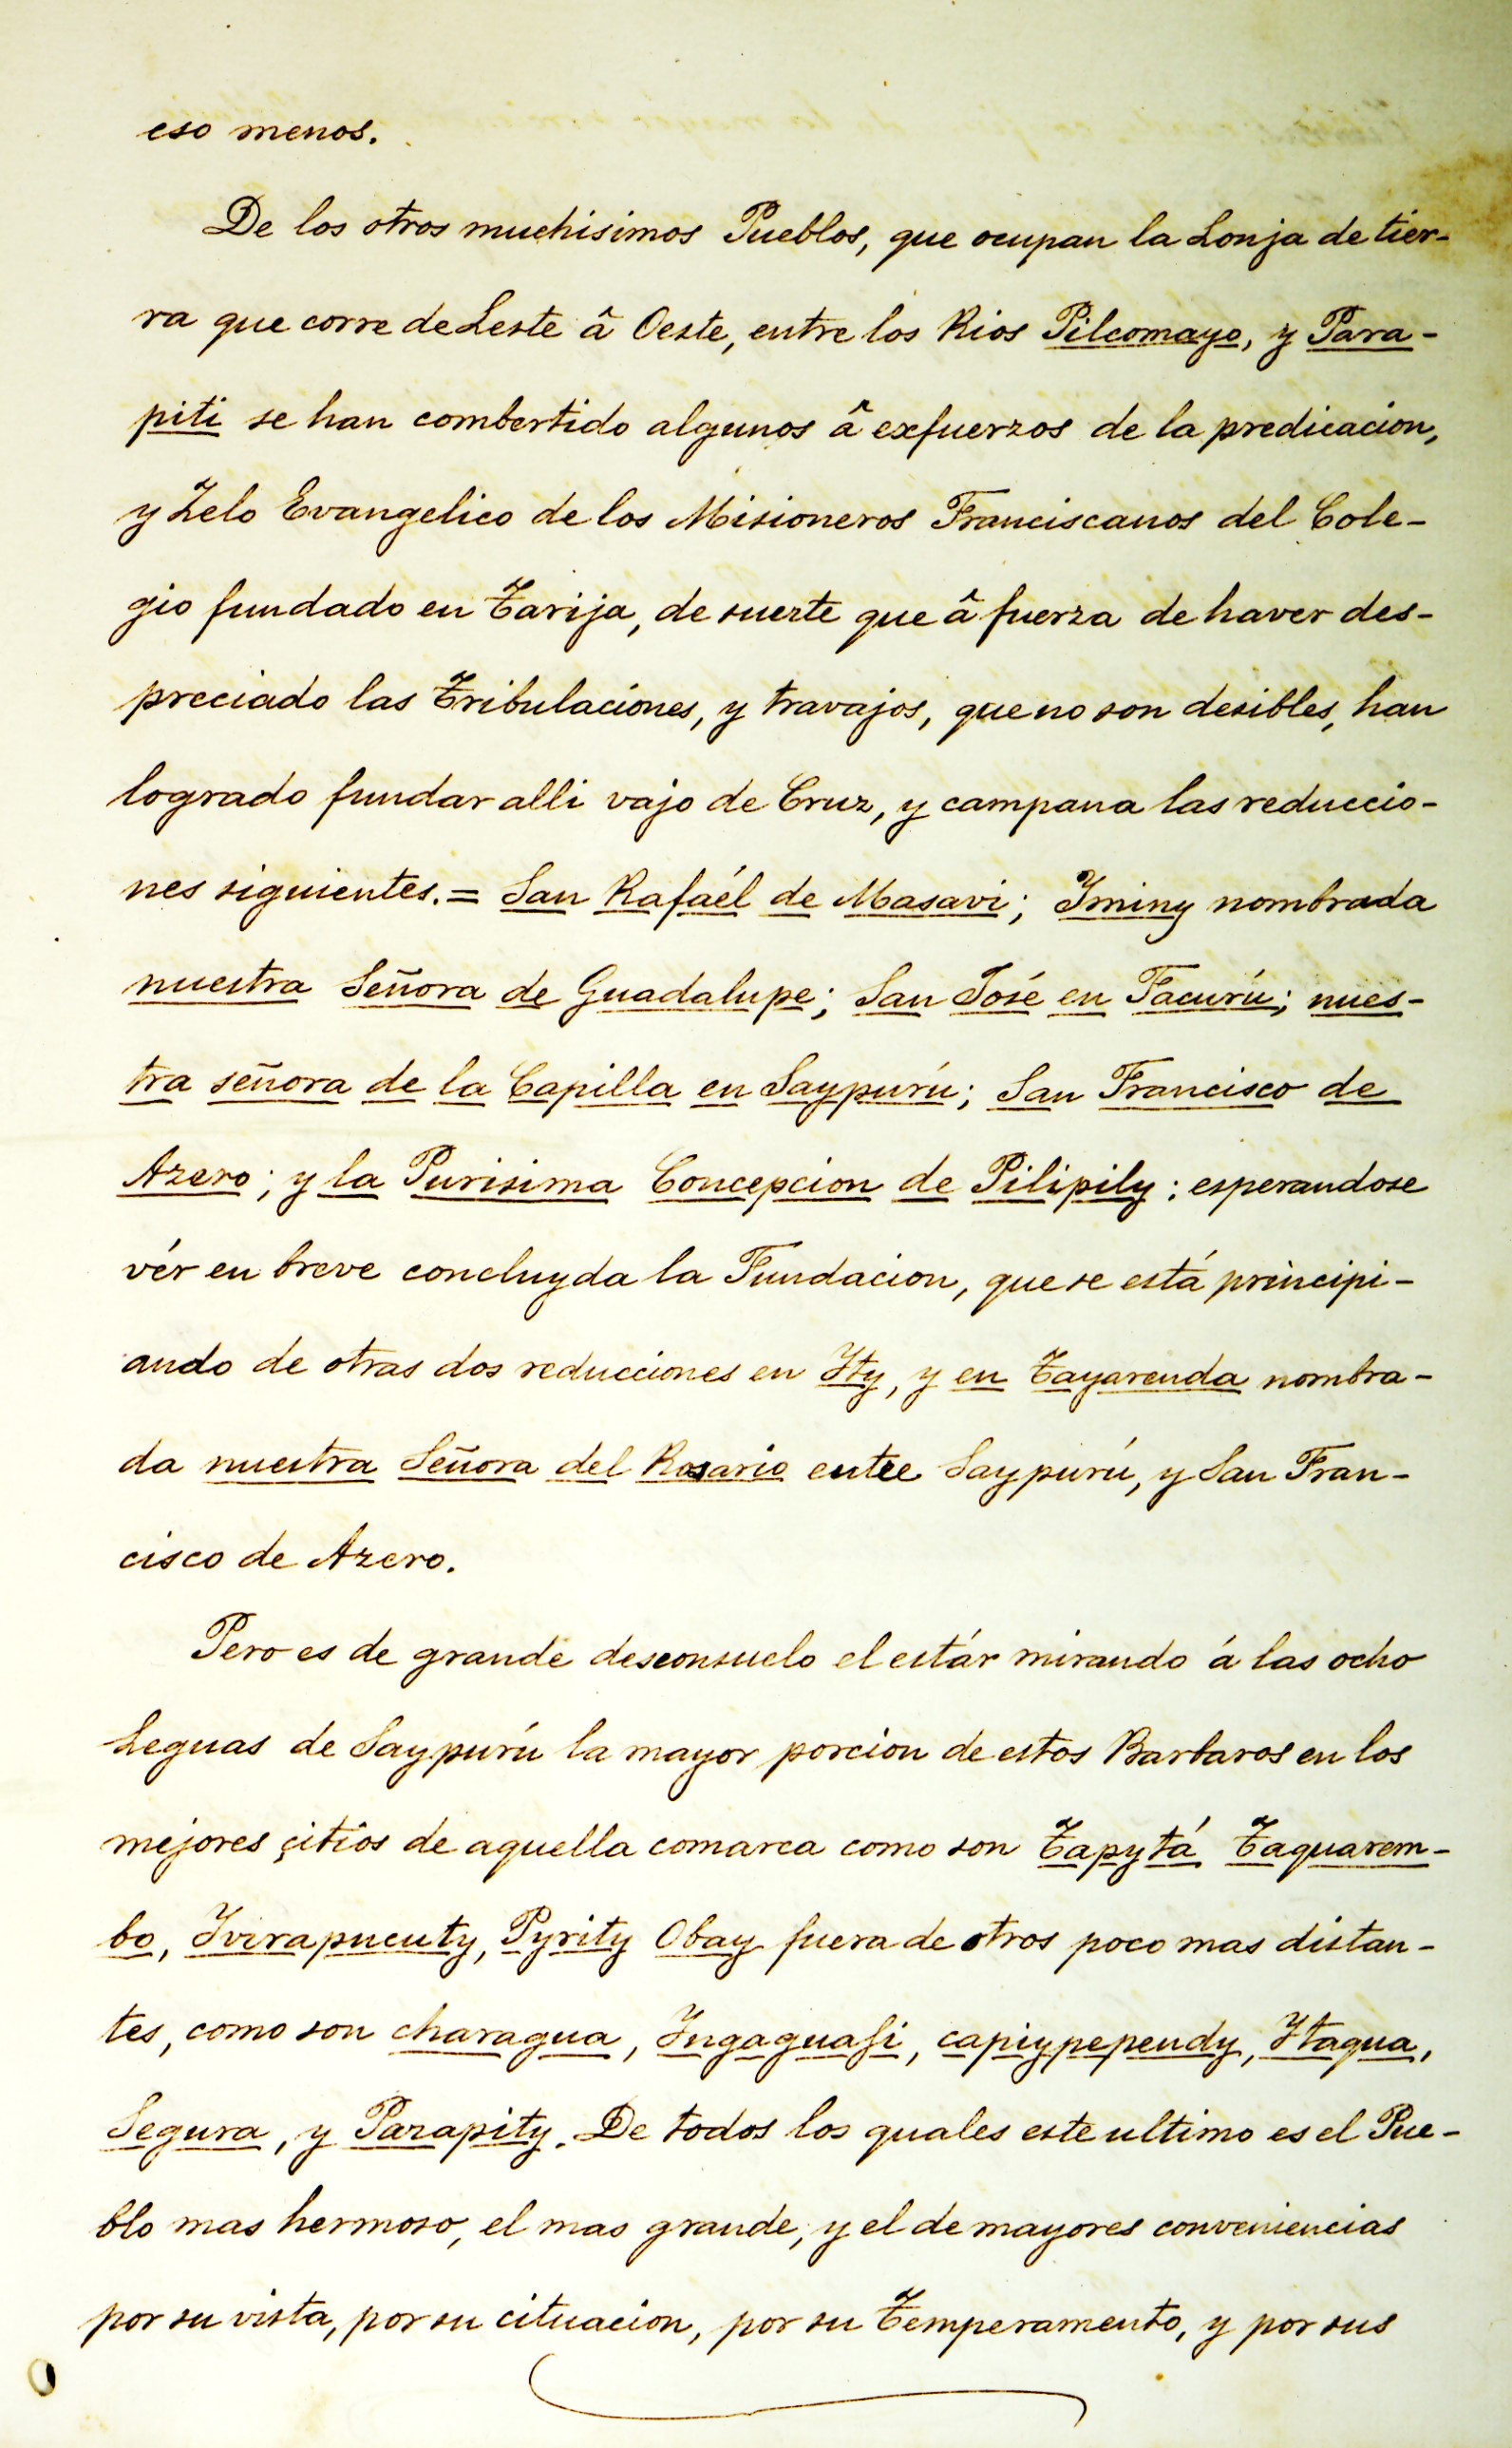 eso menos.
De los otros muchisimos Pueblos, que ocupan la Lonja de tier-
ra que corre de Leste â Oeste, entre los Rios Pilcomayo, y Para-
piti se han combertido algunos â exfuerzos de la predicacion,
y Zelo Evangelico de los Misioneros Franciscanos del Cole-
gio fundado en Tarija, de suerte que â fuerza de haver des-
preciado las Tribulaciones, y travajos, que no son desibles, han
logrado fundar alli vajo de Cruz, y campana las reduccio-
nes siguientes. = San Rafaél de Masavi; Iminy nombrada
nuestra Señora de Guadalupe; San José en Tacurú; nues-
tra señora de la Capilla en Saypurú; San Francisco de
Azero; y la Purisima Concepcion de Pilipily; esperandose
vér en breve concluyda la Fundacion, que se está principi-
ando de otras dos reducciones en Yty, y en Tayarenda nombra-
da nuestra Señora del Rosario entre Saypurú, y San Fran-
cisco de Azero.
Pero es de grande desconsuelo el estár mirando á las ocho
Leguas de Saypurú la mayor porcion de estos Barbaros en los
mejores çitios de aquella comarca como son Tapytá Taquarem-
bo, Ivirapucuty, Pyrity Obay fuera de otros poco mas distan-
tes, como son charagua, Ingaguasi, capiypependy, Ytagua,
Segura, y Parapity. De todos los quales este ultimo es el Pue-
blo mas hermoso, el mas grande, y el de mayores conveniencias
por su vista, por su cituacion, por su Temperamento, y por sus